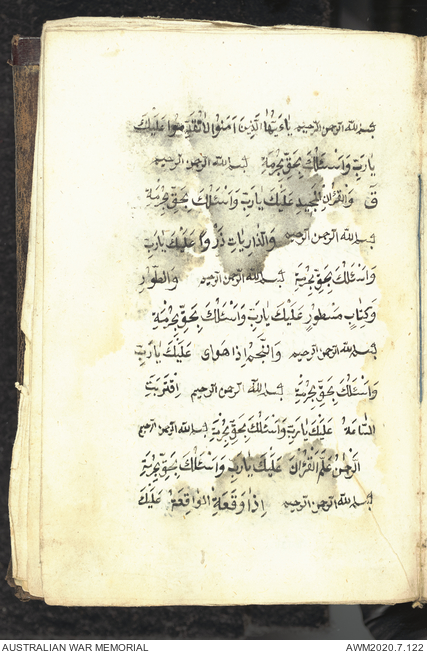 بسم الله الرحمن الرحيم ياءيها الذين امنوا لا تقدموا عليك
يارب واسئلك بحق بحرمة بسم الله الرحمن الرحيم
ق والقران المجيد عليك يارب واسئلك بحق بحرمة
بسم الله الرحمن الرحيم والذاريات ذروا عليك يارب
واسئلك بحق بحرمة بسم الله الرحمن الرحيم والطور
وكتاب مسطور عليك يارب واسئلك بحق بحرمة
بسم الله الرحمن الرحيم والنجم اذا هواى عليك يارب
واسئلك بحق بحرمة بسم الله الرحمن الرحيم اقتربت
الساعة عليك يارب واسئلك بحق بحرمة بسم الله الرحمن الرحيم
الرحمن علم القران عليك يارب واسئلك بحق بحرمة
بسم الله الرحمن الرحيم اذا وقعة الواقعة عليك
AUSTRALIAN WAR MEMORIAL AWM2020.7.122